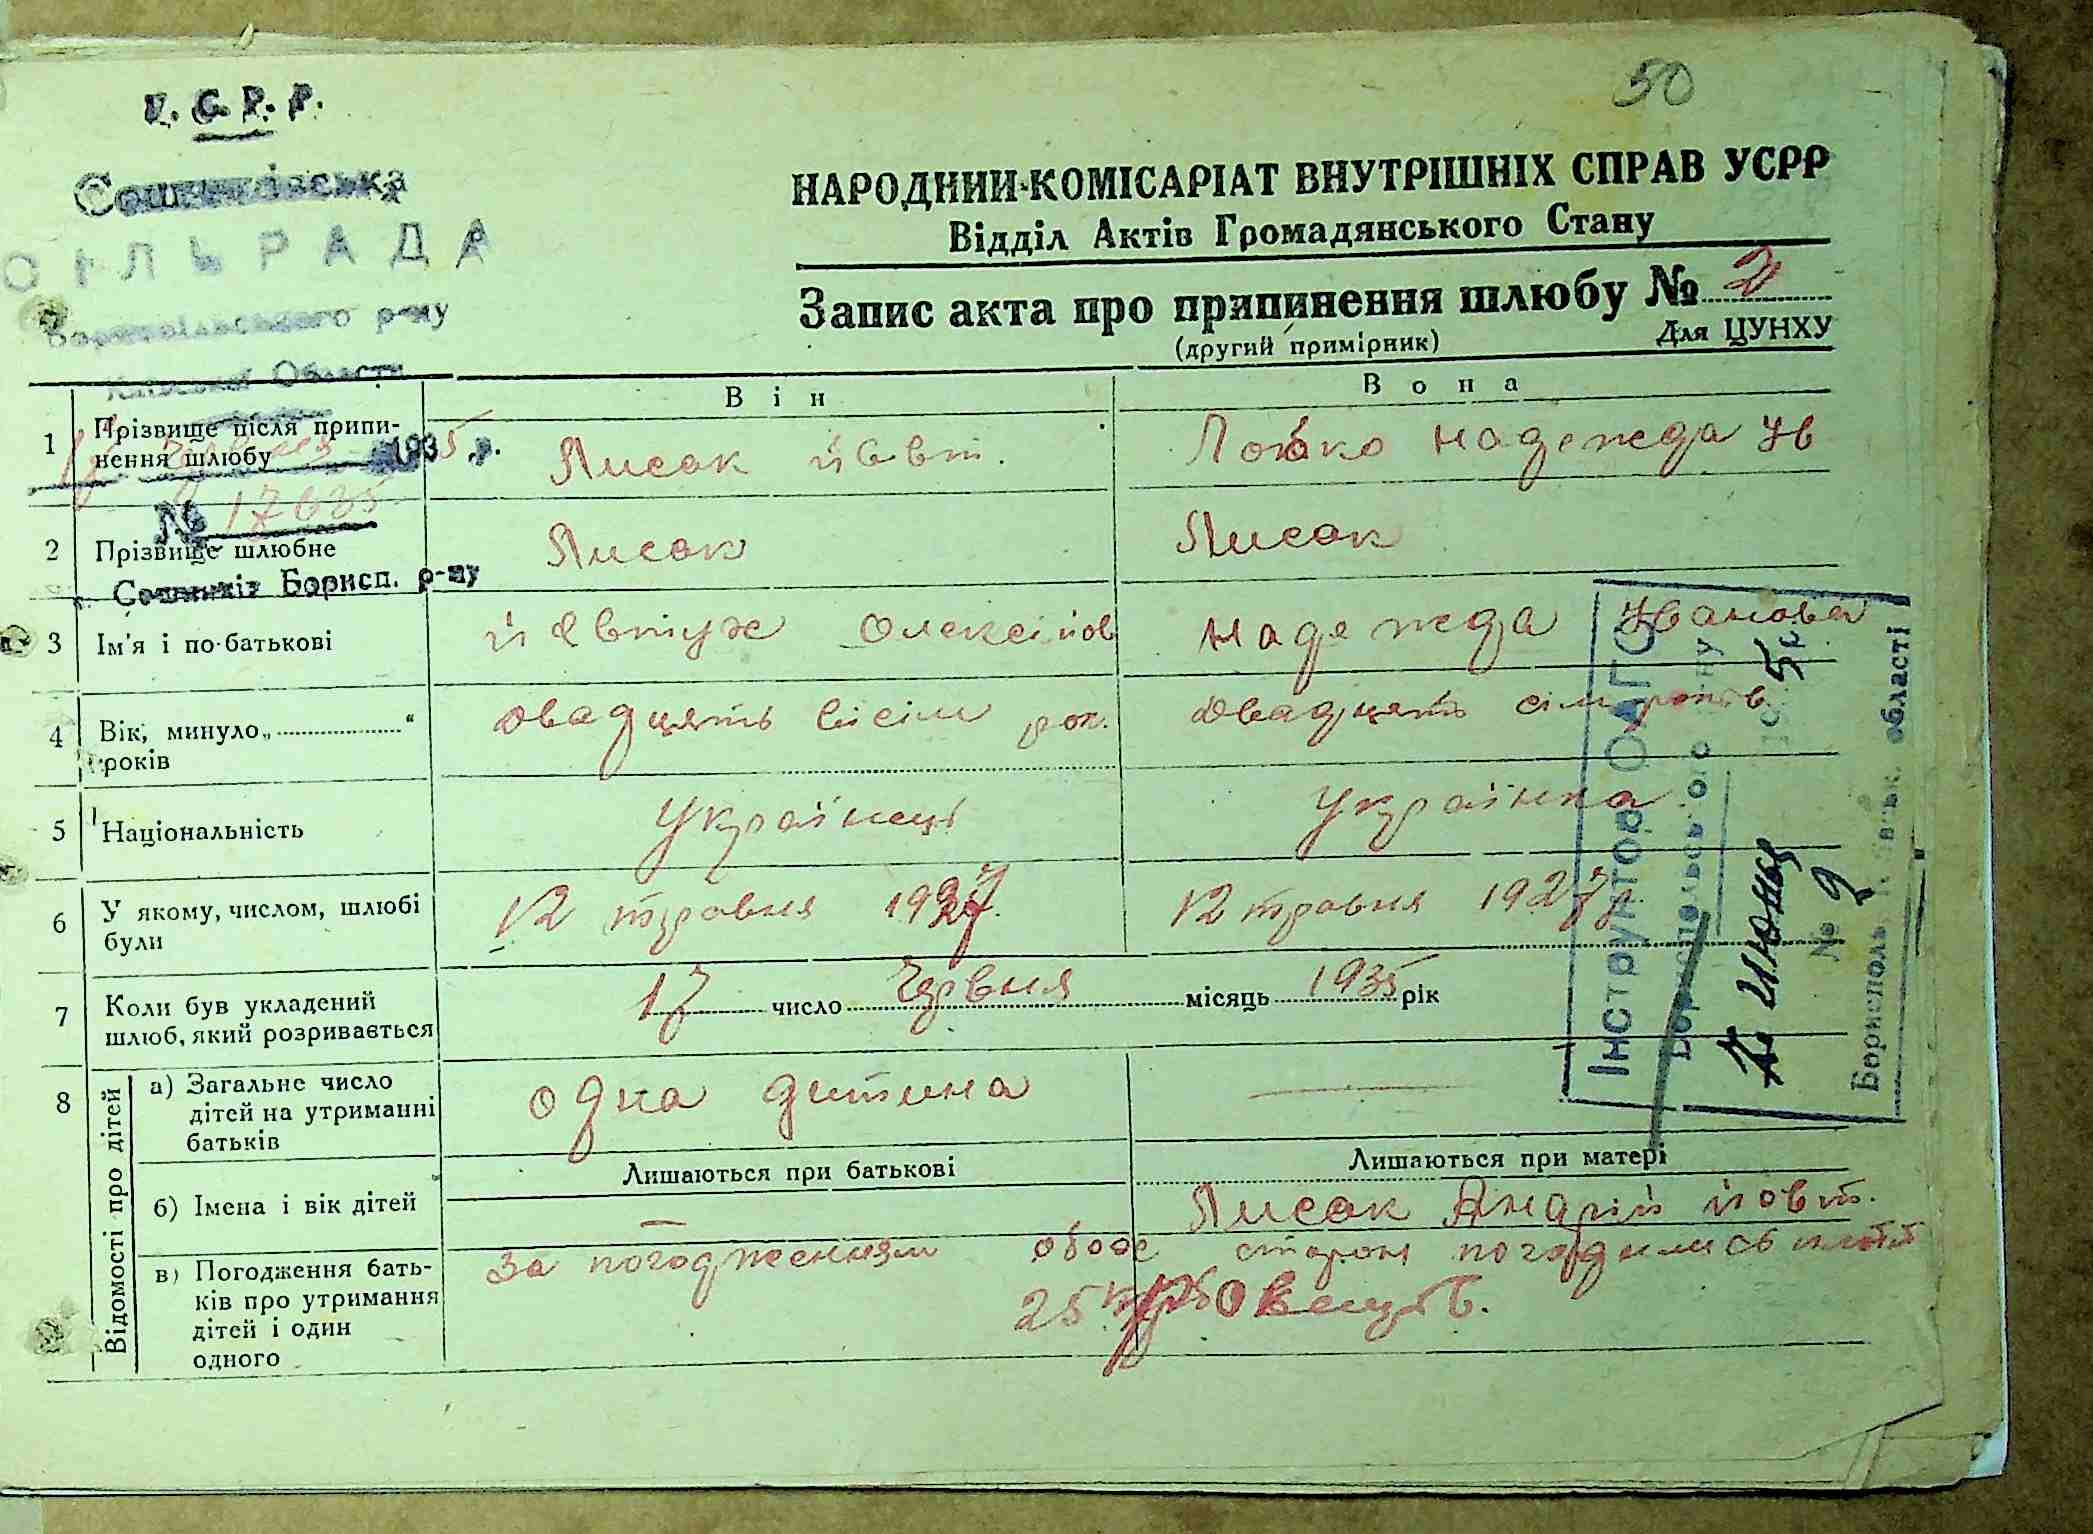 50
У. С. Р. Р.
Сошниківська
СІЛЬРАДА
Бориспільського р-ну
Київської Області
1935 р.
№ 17635
с. Сошників Борисп. р-ну
НАРОДНИЙ КОМІСАРІАТ ВНУТРІШНІХ СПРАВ УСРР
Відділ Актів Громадянського Стану
Запис акта про припинення шлюбу № 2
(другий примірник) Для ЦУНХУ
Він Вона
1 Прізвище після припи-
нення шлюбу
Лисак Йовт. Лойко Надежда Ів
2 Прізвище шлюбне Лисак Лисак
3 Ім'я і по-батькові Йевтух Олексійов Надежда Іванова
4 Вік, минуло „ “
років
двадцять вісім рок. двадцять сім років
5 Національність Українець Українка
6 У якому, числом, шлюбі
були
12 травня 1927. 12 травня 1927 р.
7 Коли був укладений
шлюб, який розривається
17 число Червня місяць 1935 рік
8 Відомості про дітей
а) Загальне число
дітей на утриманні
батьків
одна дитина —
Лишаються при батькові Лишаються при матері
б) Імена і вік дітей — Лисак Андрій Йовт.
в) Погодження бать-
ків про утримання
дітей і один
одного
за погодженням обоє сторон погодились
25
Інструктор ОАГС
Бориспольського р-ну
195 р.
№ 2
Бориспіль Київськ. області